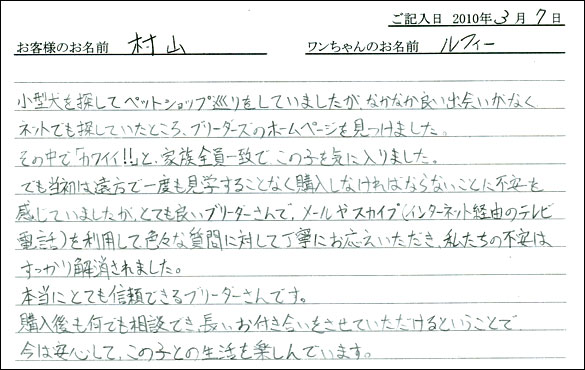 ご記入日 2010年3月7日
お客様のお名前 村山 ワンちゃんのお名前 ルフィー
小型犬を探してペットショップ巡りをしていましたが、なかなか良い出会いがなく
ネットでも探していたところ、ブリーダーズのホームページを見つけました。
その中で「カワイイ!!」と、家族全員一致で、この子を気に入りました。
でも当初は遠方で一度も見学することなく購入しなければならないことに不安を
感じていましたが、とても良いブリーダーさんで、メールやスカイプ(インターネット経由のテレビ
電話)を利用して色々な質問に対して丁寧にお応えいただき、私たちの不安は
すっかり解消されました。
本当にとても信頼できるブリーダーさんです。
購入後も何でも相談でき、長いお付き合いをさせていただけるということで
今は安心して、この子との生活を楽しんでいます。